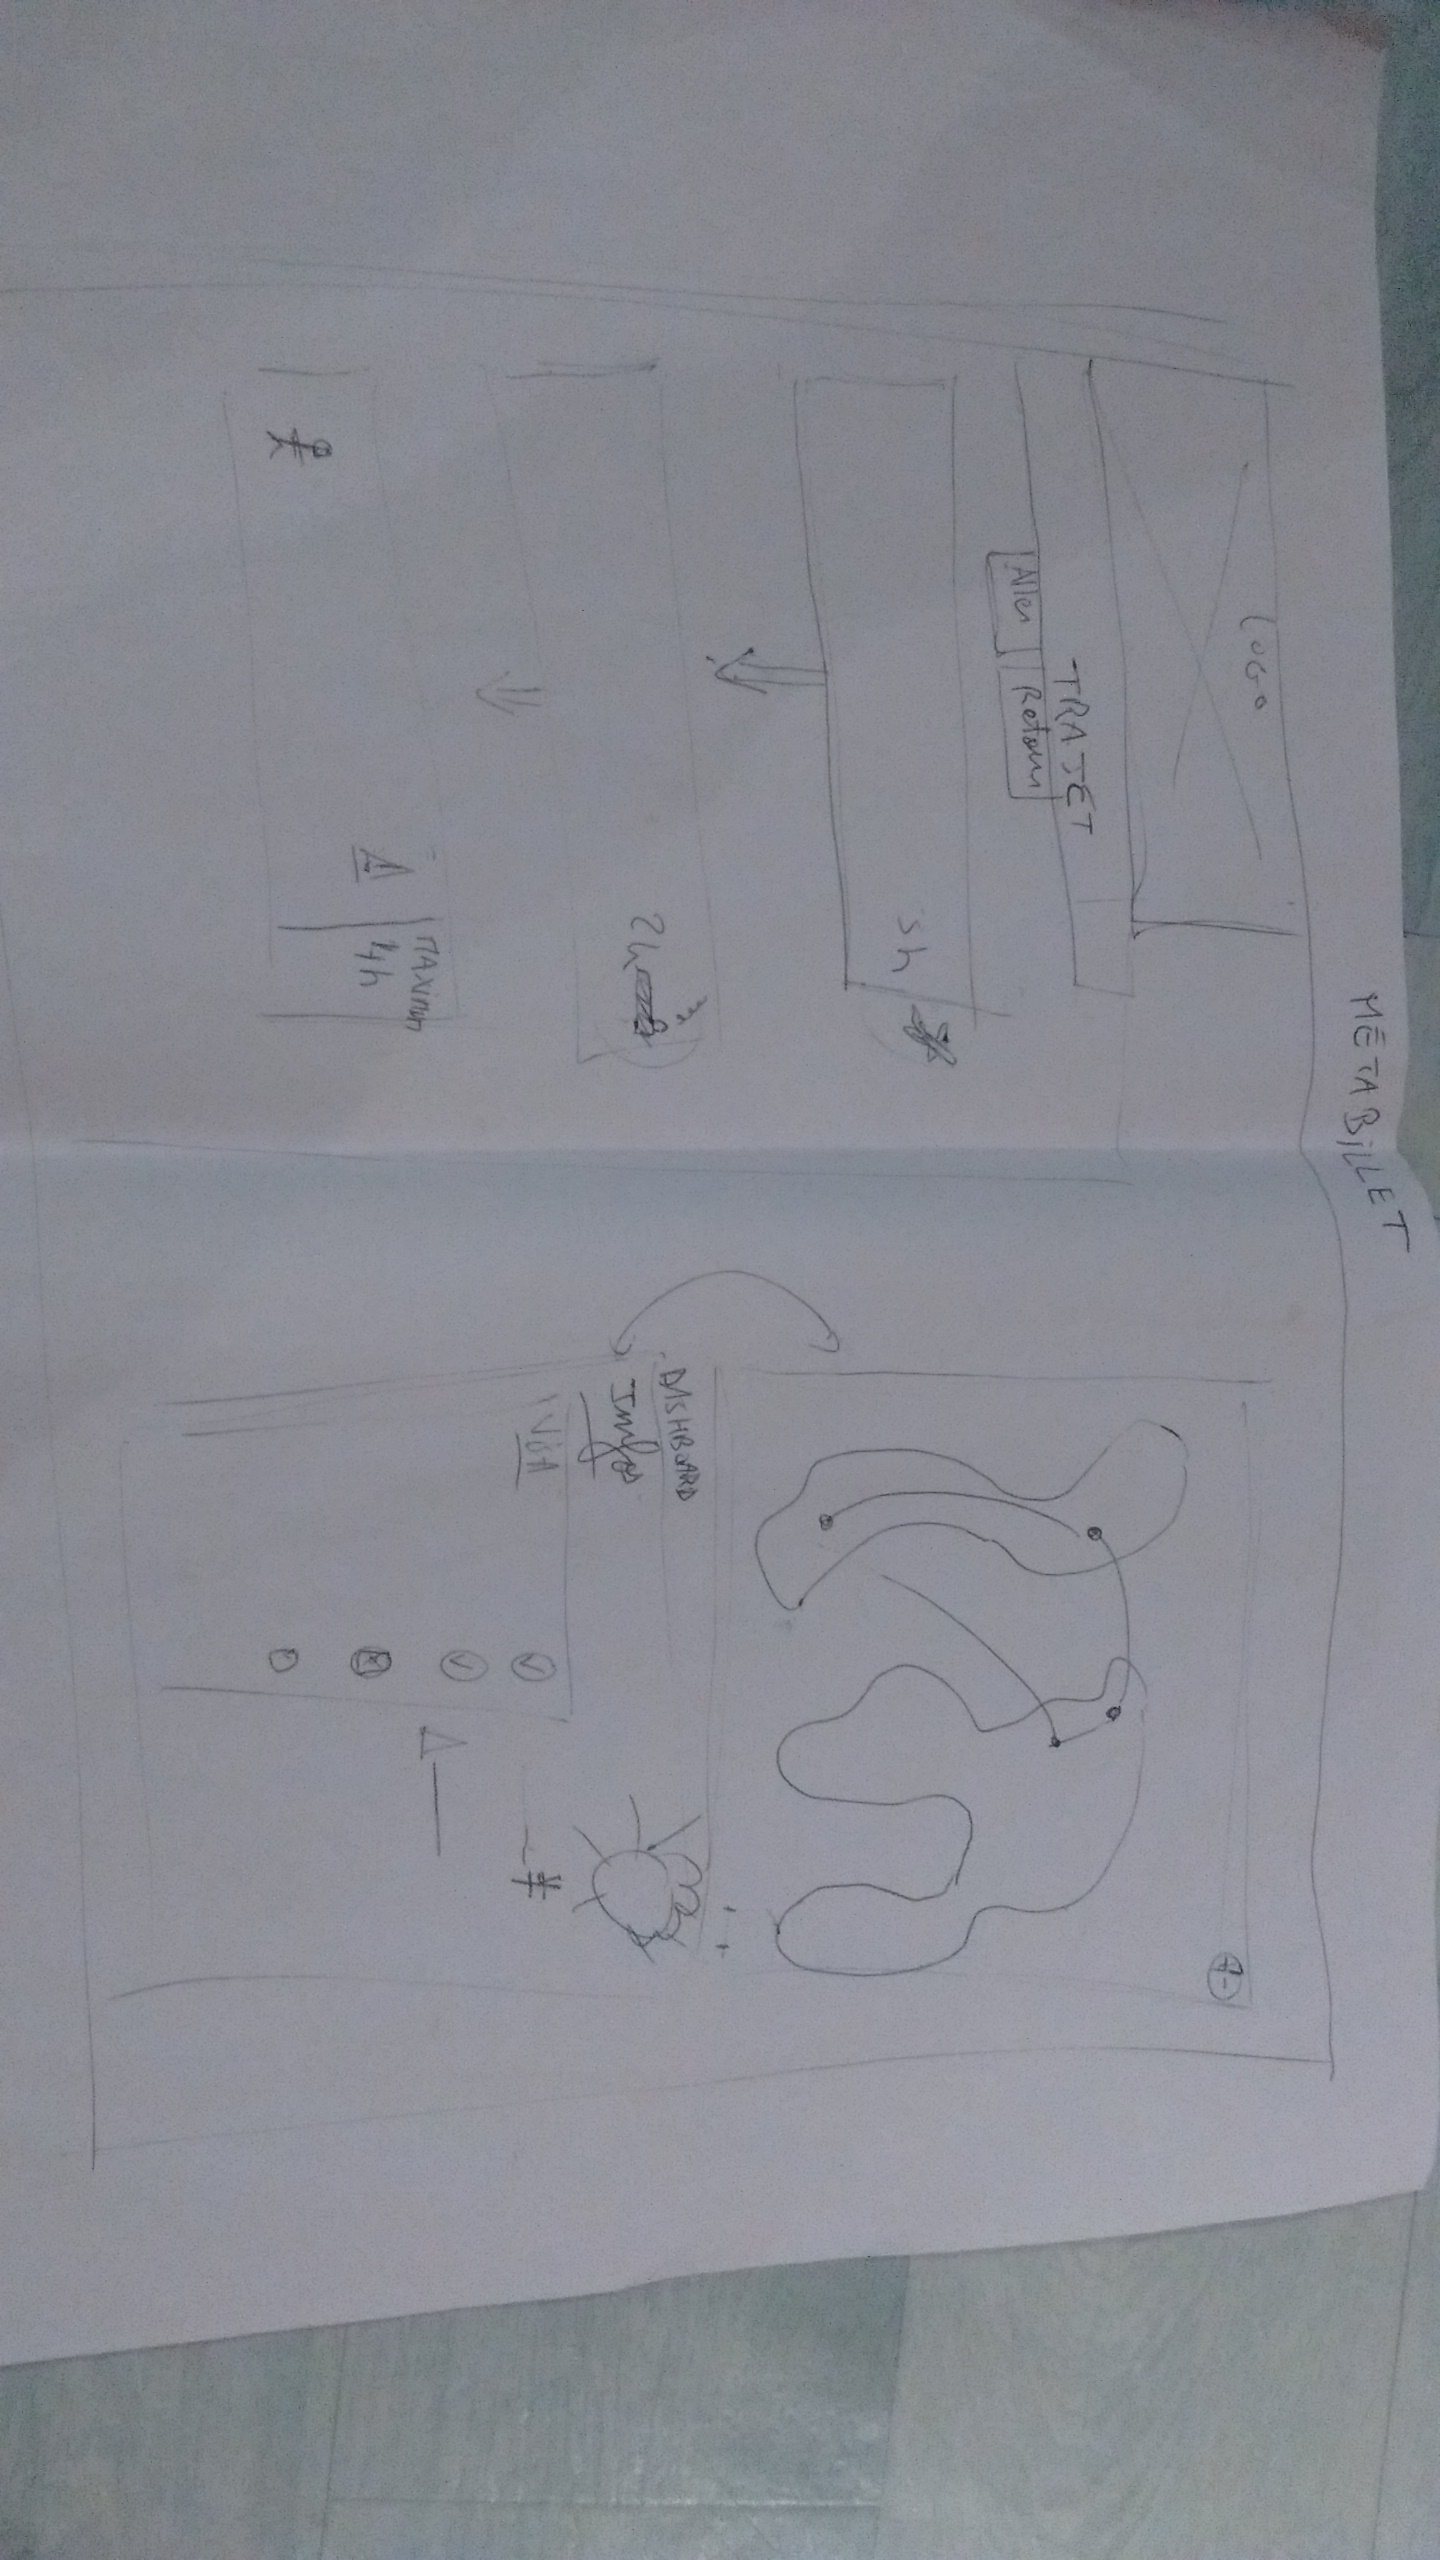 METABiLLET
LOGO
TRAJET
Aller Retour
5h
2h
MAXimum
4h
DASHBOARD
Infos
ViSA